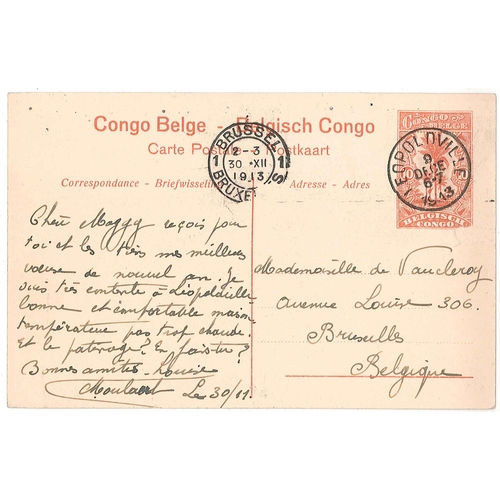 Congo Belge - Belgisch Congo
Carte Postale - Postkaart
Correspondance - Briefwisseling
Adresse - Adres
CONGO BELGE
BELGISCH CONGO
BRUSSEL
1 2-3 1
30 XII
1913
BRUXELLES
LEOPOLDVILLE
9
DÉCE
6
1913
Chère Maggy reçois pour
toi et les tiens mes meilleurs
vœux de nouvel an. Je
suis très contente à Léopoldville
bonne et confortable maison
température pas trop chaude.
Et le patinage? En fais-tu?
Bonnes amitiés. Louise
Moulaert Le 30/11.
Mademoiselle de Vaucleroy
Avenue Louise 306.
Bruxelles
Belgique